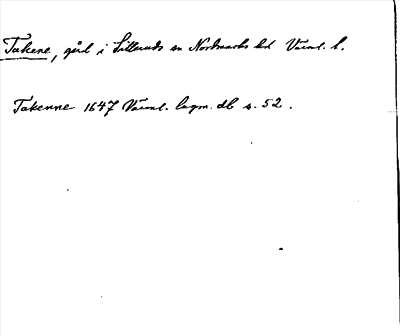 Takene, gård i Silleruds sn Nordmarks hd Värml. l.
Takenne 1647 Värml. lagm. db s. 52.